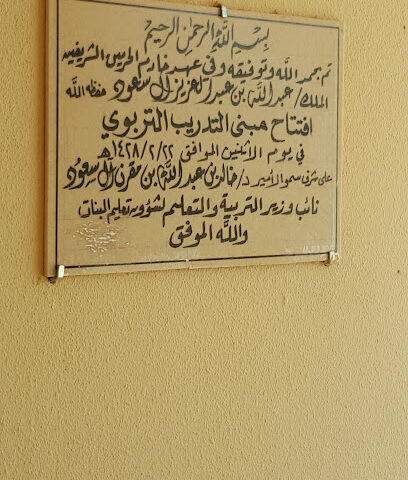 بسم الله الرحمن الرحيم
تم بحمد الله وتوفيقه وفي عهد خادم الحرمين الشريفين
الملك/ عبدالله بن عبدالعزيز آل سعود حفظه الله
افتتاح مبنى التدريب التربوي
في يوم الأثنين الموافق ١٤٢٨/٢/٢٢هـ
على شرف سمو الأمير د/ خالد بن عبدالله بن مقرن آل سعود
نائب وزير التربية والتعليم لشؤون تعليم البنات
والله الموفق